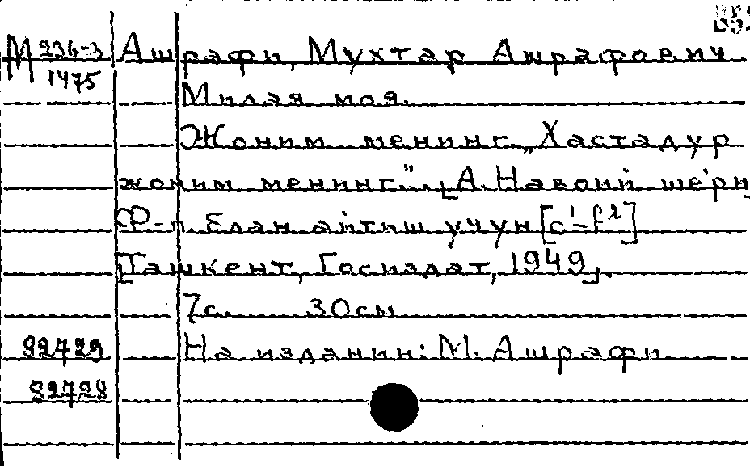 М 236-3 Ашрафи, Мухтар Ашрафович
1475
Милая моя.
Жоним менинг „Хастадур
жоним менинг". [А. Навоий шеъри]
Ф-п. билан айтиш учун [c¹-f²]
[Ташкент, Госиздат, 1949].
7с. 30см
92729 На издании: М. Ашрафи
92728